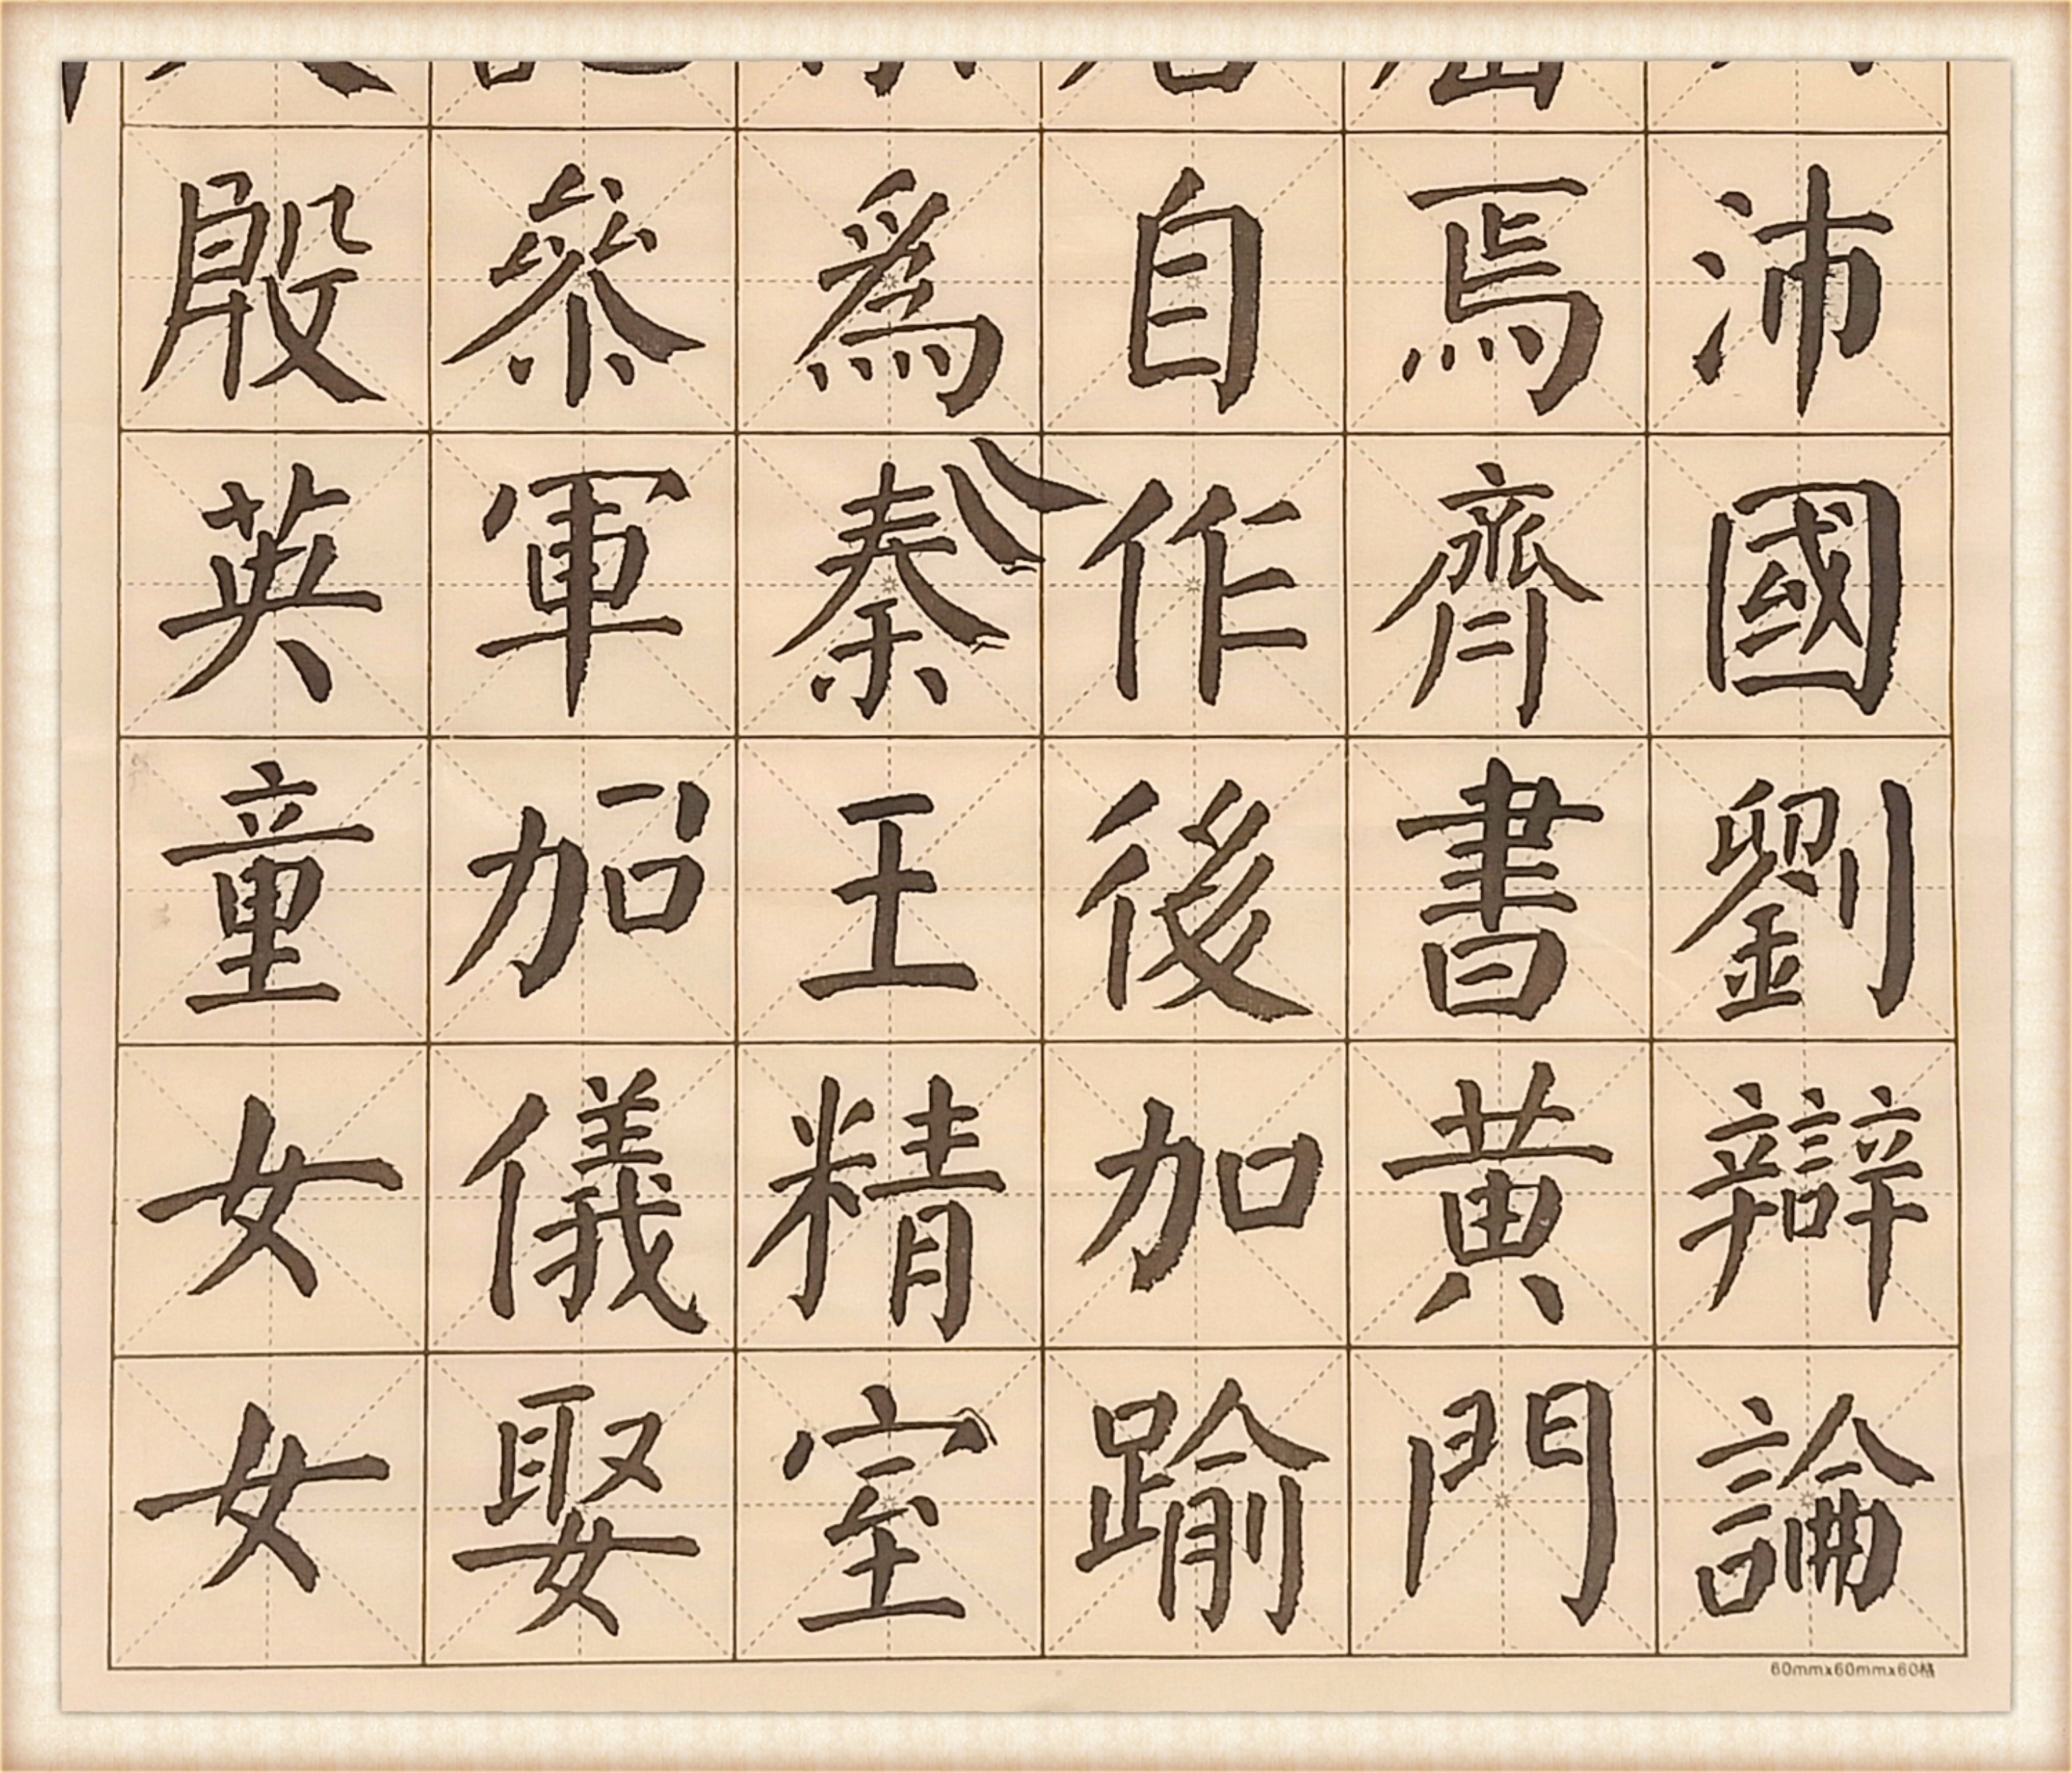 沛國劉辯論
焉齊書黄門
自作後加踰
爲秦王精室
參軍加儀娶
殷英童女女
60mmx60mmx60格